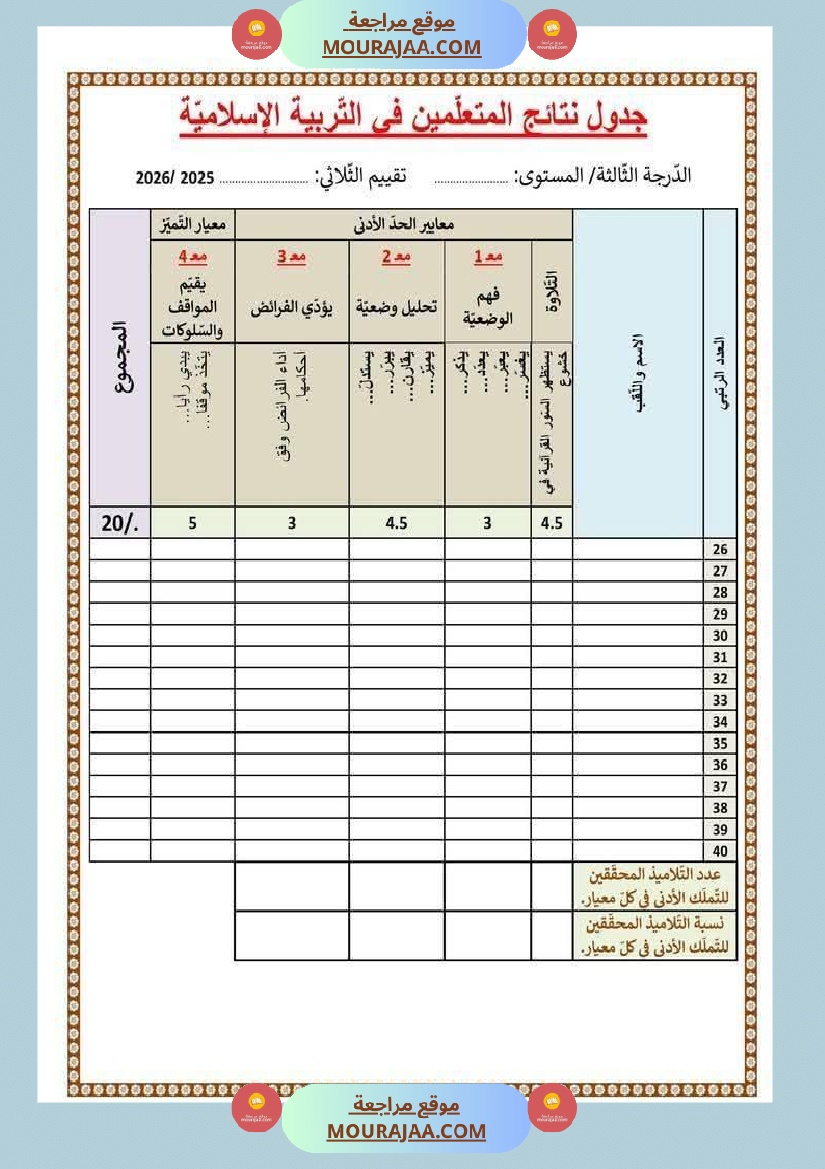 موقع مراجعة
MOURAJAA.COM
جدول نتائج المتعلّمين في التّربية الإسلاميّة
الدّرجة الثّالثة/ المستوى: ........................ تقييم الثّلاثي: ............................ 2025 /2026
العدد الرتبي
الاسم واللّقب
معايير الحدّ الأدنى
معيار التّميّز
المجموع
التّلاوة
مع 1
فهم
الوضعيّة
مع 2
تحليل وضعيّة
مع 3
يؤدّي الفرائض
مع 4
يقيّم
المواقف
والسّلوكات
يستظهر السّور القرآنية في
خشوع
يفسّر....
يعبّر....
يعدّد....
يذكر....
يميّز....
يقارن...
يبرز....
يستدلّ...
أداء الفرائض وفق
أحكامها.
يبدي رأيا...
يتّخذ موقفا...
4.5
3
4.5
3
5
20/.
26
27
28
29
30
31
32
33
34
35
36
37
38
39
40
عدد التّلاميذ المحقّقين
للتّملّك الأدنى في كلّ معيار.
نسبة التّلاميذ المحقّقين
للتّملّك الأدنى في كلّ معيار.
موقع مراجعة
MOURAJAA.COM